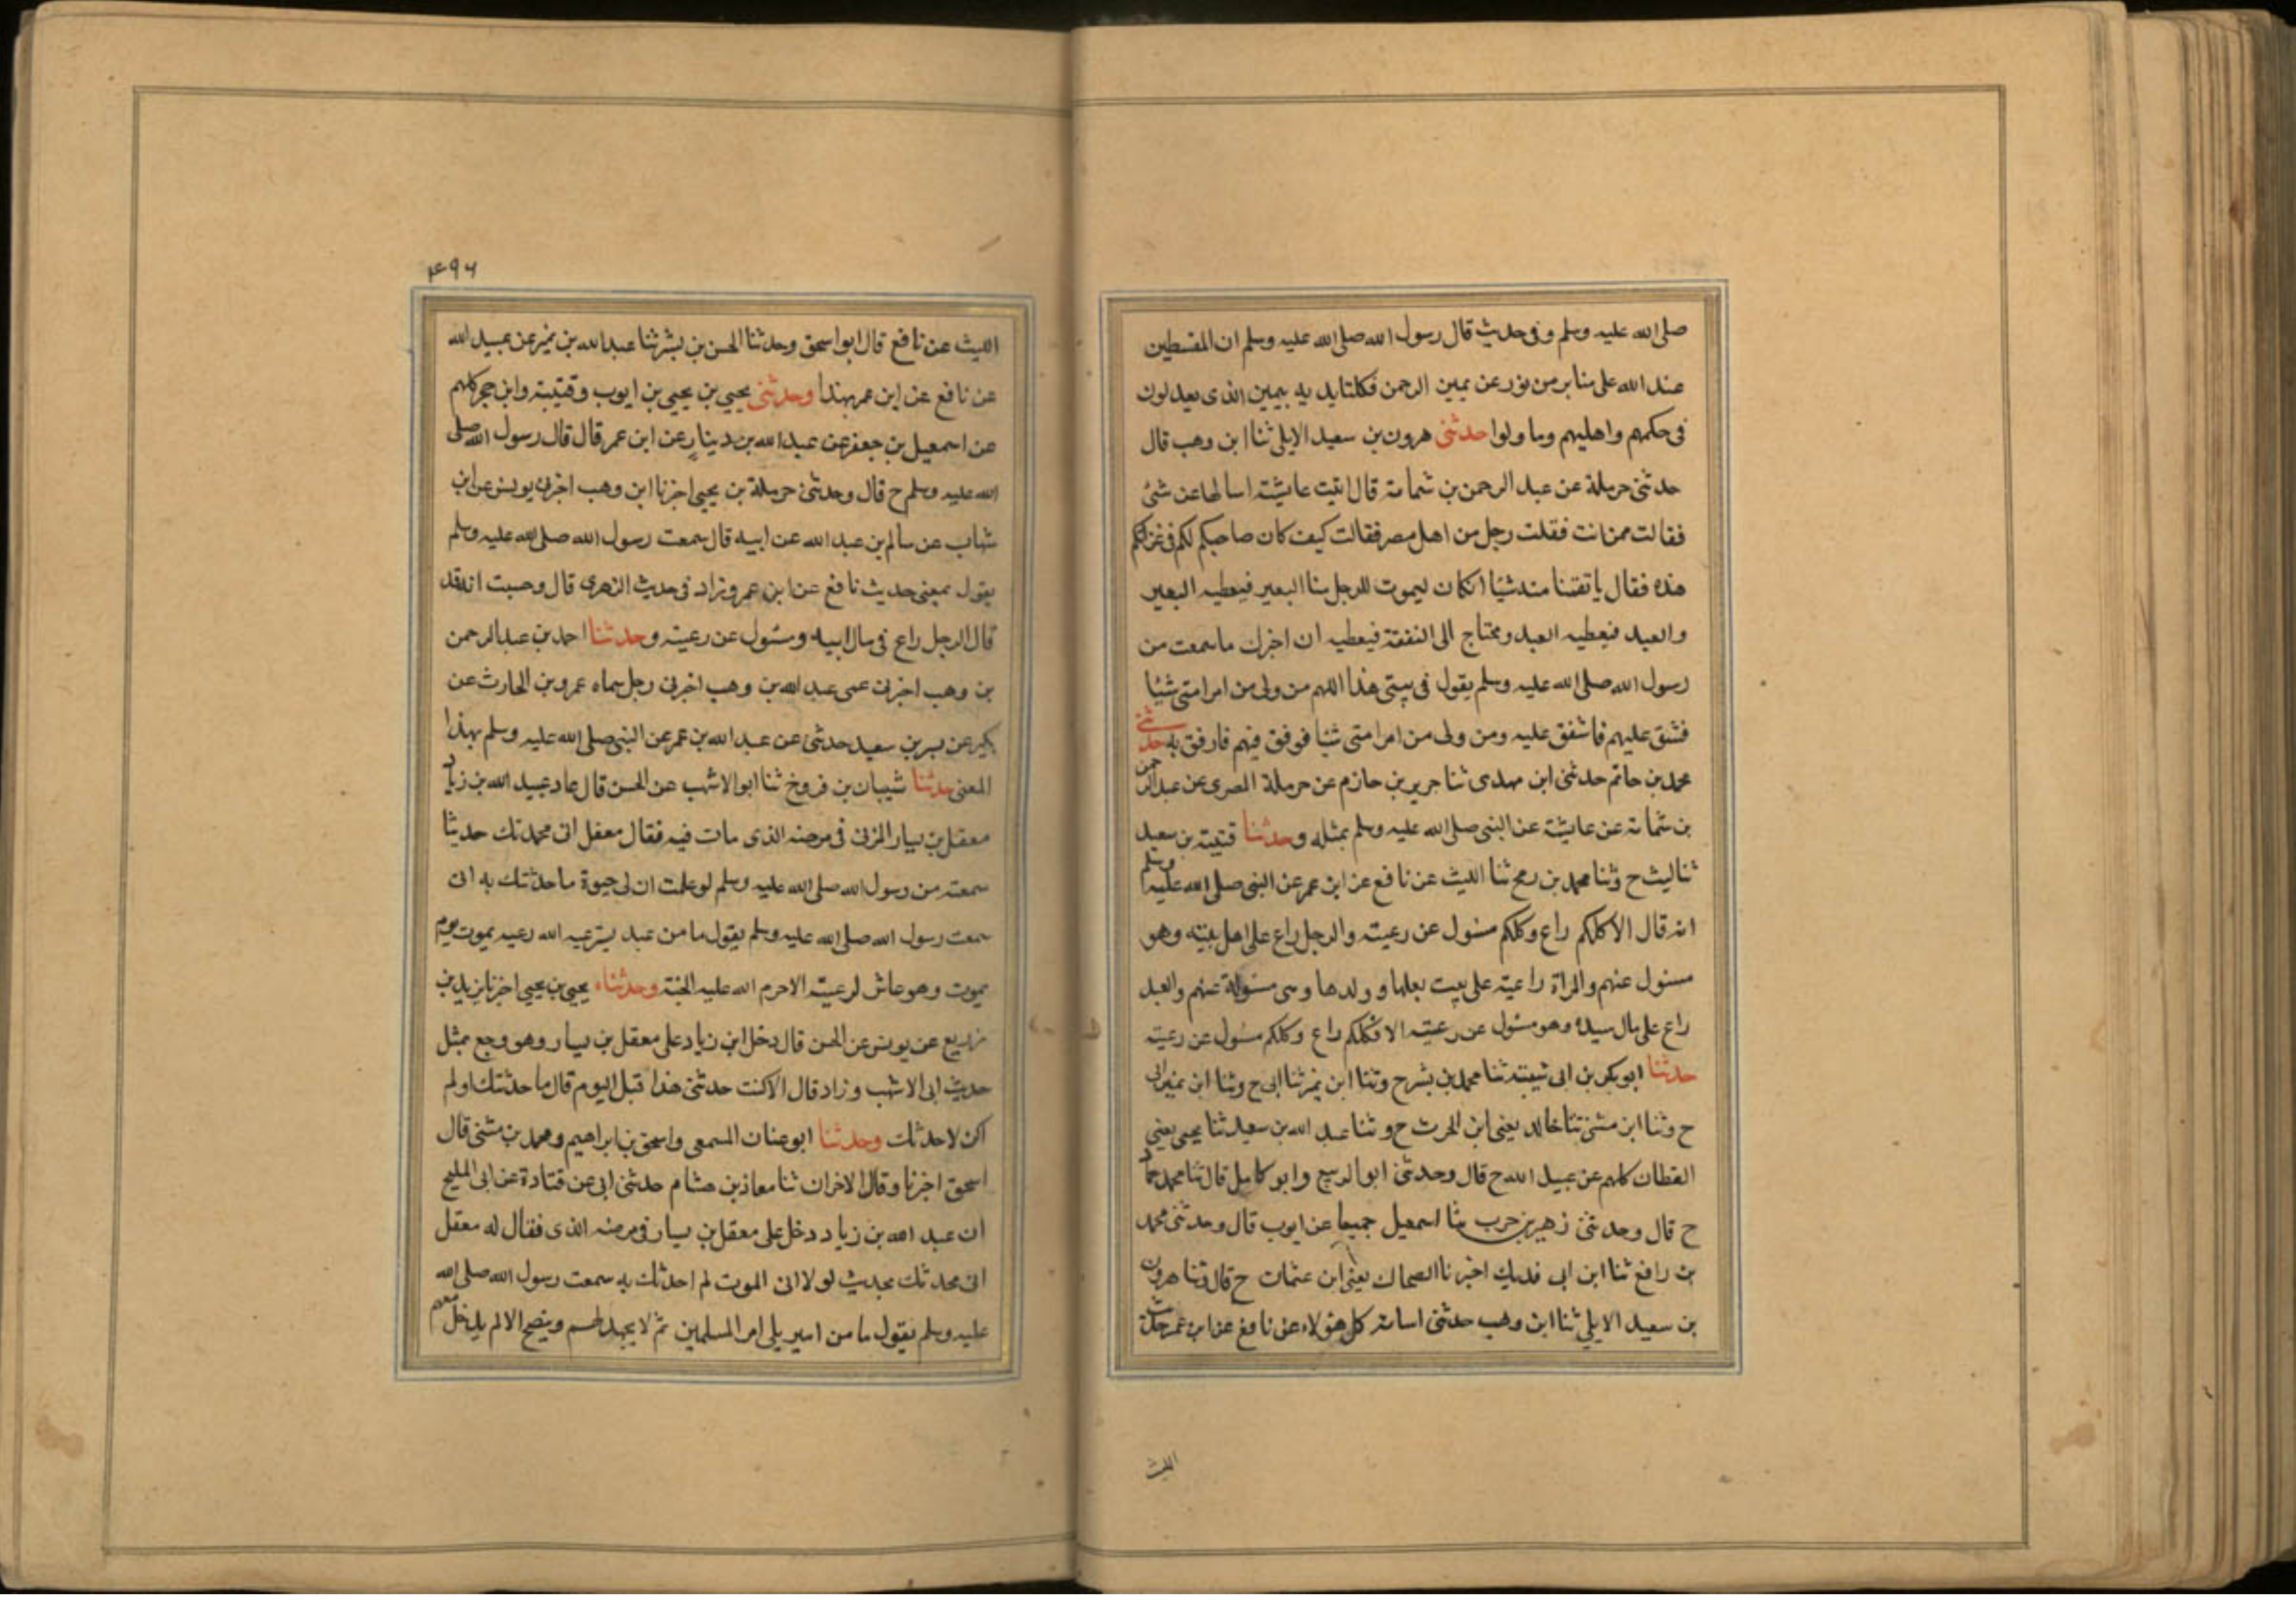 صلى الله عليه وسلم وفى حديث قال رسول الله صلى الله عليه وسلم ان المقسطين
عند الله على منابر من نور عن يمين الرحمن فكلتا يديه يمين الذى يعدلون
فى حكمهم واهليهم وما ولوا حدثنى هرون بن سعيد الايلى ثنا ابن وهب قال
حدثنى حرملة عن عبد الرحمن بن شماسة قال اتيت عايشة اسالها عن شئ
فقالت ممن انت فقلت رجل من اهل مصر فقالت كيف كان صاحبكم لكم فى غزاتكم
هذه فقال ما تقمنا منه شيئا انكان ليموت للرجل منا البعير فيعطيه البعير
والعبد فيعطيه العبد ومحتاج الى النفقة فيعطيه ان اخبرك ما سمعت من
رسول الله صلى الله عليه وسلم يقول فى بيتى هذا اللهم من ولى من امر امتى شيئا
فشق عليهم فاشفق عليه ومن ولى من امر امتى شيئا فوفق فيهم فارفق به حدثنى
محمد بن حاتم حدثنى ابن مهدى ثنا جرير بن حازم عن حرملة المصرى عن عبد الرحمن
بن شماسة عن عايشة عن النبى صلى الله عليه وسلم بمثله وحدثنا قتيبة بن سعيد
ثنا ليث ح وثنا محمد بن رمح ثنا الليث عن نافع عن ابن عمر عن النبى صلى الله عليه وسلم
انه قال الا كلكم راع وكلكم مسئول عن رعيته والرجل راع على اهل بيته وهو
مسئول عنهم والمراة راعية على بيت بعلها و ولدها وهى مسئولة عنهم والعبد
راع على مال سيده وهو مسئول عن رعيته الا فكلكم راع وكلكم مسئول عن رعيته
حدثنا ابو بكر بن ابى شيبة ثنا محمد بن بشر ح وثنا ابن نمير ثنا ابى ح وثنا ابن
ح وثنا ابن مثنى ثنا خالد يعنى ابن الحرث ح وثنا عبد الله بن سعيد ثنا يحيى يعنى
القطان كلهم عن عبيد الله ح قال وحدثنى ابو الربيع وابو كامل قال ثنا محمد حماد
ح قال وحدثنى زهير بن حرب ثنا اسمعيل جميعا عن ايوب قال وحدثنى محمد
بن رافع ثنا ابن ابى فديك اخبرنا الضحاك يعنى ابن عثمان ح قال وثنا هرون
بن سعيد الايلى ثنا ابن وهب حدثنى اسامة كل هؤلاء عن نافع عن ابن عمر
الليث
۴۹۶
الليث عن نافع قال ابو اسحق وحدثنا الحسن بن بشر ثنا عبد الله بن نمير عن عبيد الله
عن نافع عن ابن عمر بهذا وحدثنى يحيى بن يحيى بن ايوب وقتيبة وابن حجر كلهم
عن اسمعيل بن جعفر عن عبد الله بن دينار عن ابن عمر قال قال رسول الله صلى
الله عليه وسلم ح قال وحدثنى حرملة بن يحيى اخبرنا ابن وهب اخبرنى يونس عن ابن
شهاب عن سالم بن عبد الله عن ابيه قال سمعت رسول الله صلى الله عليه وسلم
يقول بمعنى حديث نافع عن ابن عمر وزاد فى حديث الزهرى قال وحسبت انه قد
قال الرجل راع فى مال ابيه ومسئول عن رعيته وحدثنا احمد بن عبد الرحمن
بن وهب اخبرنى عمى عبد الله بن وهب اخبرنى رجل سماه عمرو بن الحارث عن
بكير عن بسر بن سعيد حدثنى عن عبد الله بن عمر عن النبى صلى الله عليه وسلم بهذا
المعنى حدثنا شيبان بن فروخ ثنا ابو الاشهب عن الحسن قال عاد عبيد الله بن زياد
معقل بن يسار المزنى فى مرضه الذى مات فيه فقال معقل انى محمدثك حديثا
سمعته من رسول الله صلى الله عليه وسلم لو علمت ان لى حيوة ما حدثتك به انى
سمعت رسول الله صلى الله عليه وسلم يقول ما من عبد يسترعيه الله رعيه يموت يوم
يموت وهو غاش لرعيته الا حرم الله عليه الجنة وحدثناه يحيى بن يحيى اخبرنا يزيد بن
زريع عن يونس عن الحسن قال دخل ابن زياد على معقل بن يسار وهو وجع بمثل
حديث ابى الاشهب وزاد قال الا كنت حدثتنى هذا قبل اليوم قال ما حدثتك او لم
اكن لاحدثك وحدثنا ابو غسان المسمعى واسحق بن ابراهيم ومحمد بن مثنى قال
اسحق اخبرنا وقال الاخران ثنا معاذ بن هشام حدثنى ابى عن قتادة عن ابى المليح
ان عبد الله بن زياد دخل على معقل بن يسار فى مرضه الذى فقال له معقل
انى محدثك بحديث لولا انى الموت لم احدثك به سمعت رسول الله صلى الله
عليه وسلم يقول ما من امير يلى امر المسلمين ثم لا يجهد لهم وينصح الا لم يدخل معهم